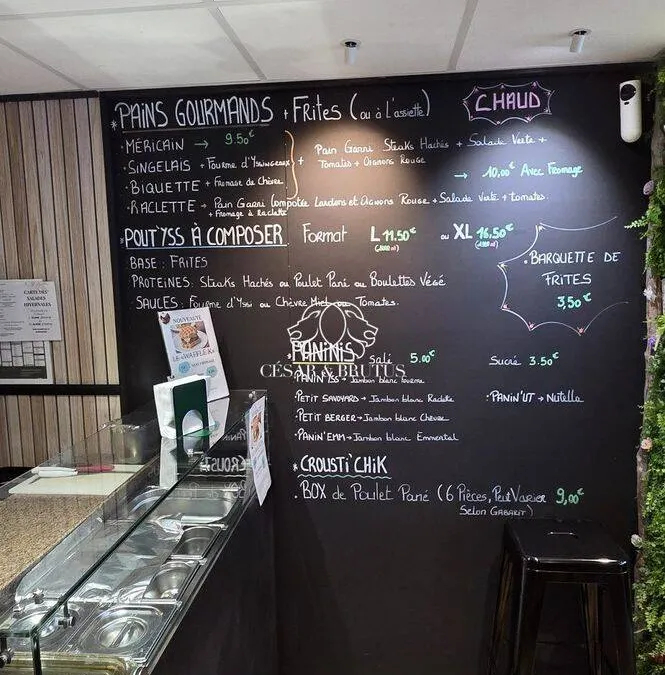 *PAINS GOURMANDS + FRITES (ou à L'assiette)
CHAUD
• MÉRICAIN → 9.50€
Pain Garni Steaks Hachés + Salade Verte +
Tomates + Oignons Rouge
• SINGELAIS + Fourme d'Yssingeaux
→ 10,00€ Avec Fromage
• BIQUETTE + Fromage de Chèvre
• RACLETTE → Pain Garni Compotée Lardons et Oignons Rouge + Salade verte + tomates.
+ Fromage à Raclette
*POUT'YSS À COMPOSER Format L 11.50€ ou XL 16,50€
BASE : FRITES
PROTEINES : Steaks Hachés ou Poulet Pané ou Boulettes Végé
SAUCES : Fourme d'Yssi ou Chèvre Miel ou Tomates.
• BARQUETTE DE
FRITES
3,50€
*PANINIS Salé 5.00€ Sucré 3.50€
CÉSAR & BRUTUS
• PANIN'YSS → Jambon blanc fourme
• PETIT SAVOYARD → Jambon blanc Raclette
• PANIN'UT → Nutella
• PETIT BERGER → Jambon blanc Chèvre
• PANIN'EMM → Jambon blanc Emmental
* CROUSTI'CHIK
• BOX de Poulet Pané (6 Pièces, Peut Varier 9,00€
Selon GABARIT)
CARTE DES
SALADES
HIVERNALES
NOUVEAUTÉ